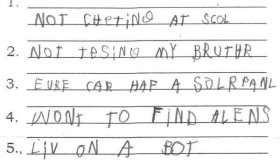 1.
NOT CHETING AT SCOL
2. NOT TESING MY BRUTHR
3. EURE CAR HAF A SOLRPANL
4. WONT TO FIND ALENS
5., LIV ON A BOT